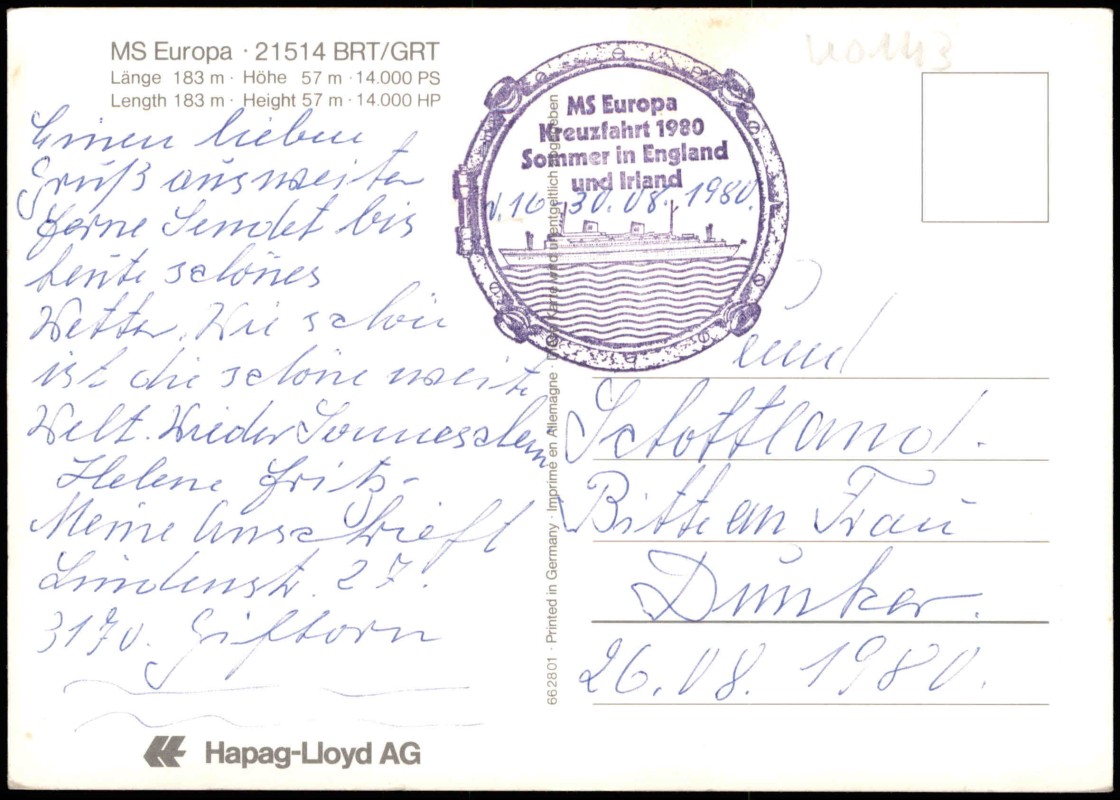 MS Europa · 21514 BRT/GRT
Länge 183 m · Höhe 57 m · 14.000 PS
Length 183 m · Height 57 m · 14.000 HP
Einen lieben
Gruß aus weiter
Ferne Sendet bis
heute schönes
Wetter. Wie schön
ist die schöne weite
Welt. Wieder Sonneschein
Helene Fritz-
Meine Anschrieft
Lindenstr. 27.
3170. Gifhorn
Hapag-Lloyd AG
MS Europa
Kreuzfahrt 1980
Sommer in England
und Irland
v. 16 30.08.1980.
662801 · Printed in Germany · Imprimé en Allemagne · Diese Karte wird unentgeltlich abgegeben
40143
und
Schottland.
Bitte an Frau
Dunker.
26.08.1980.